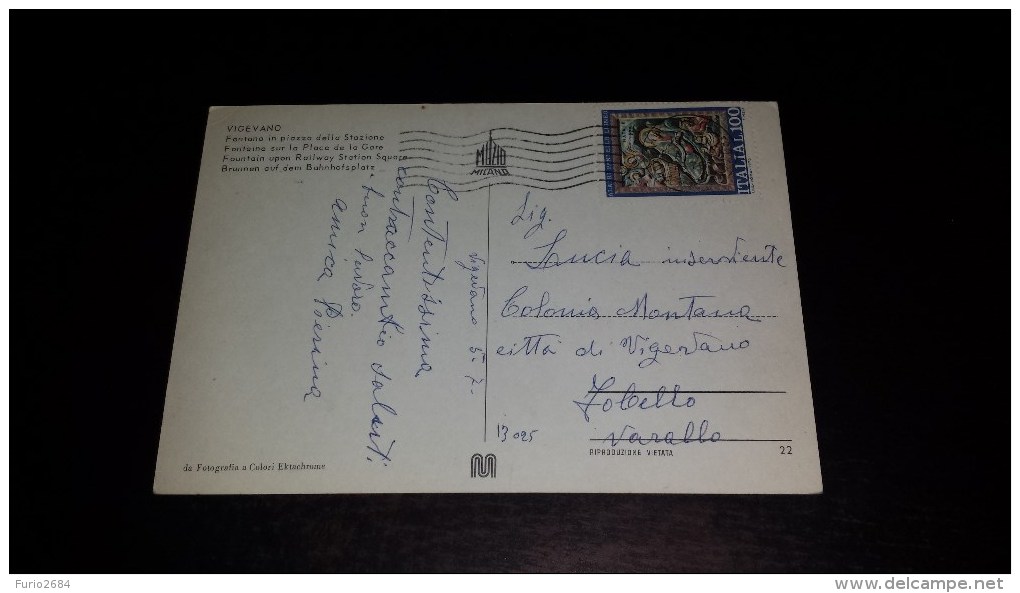 VIGEVANO
Fontana in piazza della Stazione
Fontaine sur la Place de la Gare
Fountain upon Railway Station Square
Brunnen auf dem Bahnhofsplatz
MILANO
ITALIA L.100
Vigevano 5-7-
Contentissima
contraccambio saluti
buon lavoro.
amica Pierina
Sig.
Lucia inserviente
Colonia Montana
città di Vigevano
Fobello
Varallo
13025
RIPRODUZIONE VIETATA 22
da Fotografia a Colori Ektachrome
Furio2684
delcampe.net